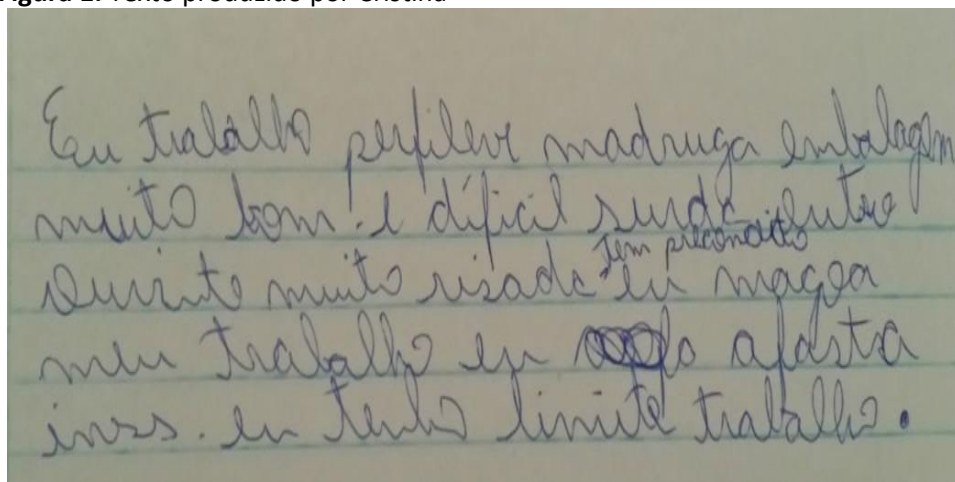 Figura 2. Texto produzido por Cristina
Eu trabalho perfileve madruga embalagem
muito bom. e difícil surda outro
Ouvinte muito risada tem preconceito eu magoa
meu trabalho eu afasta
inss. eu tenho limite trabalho.